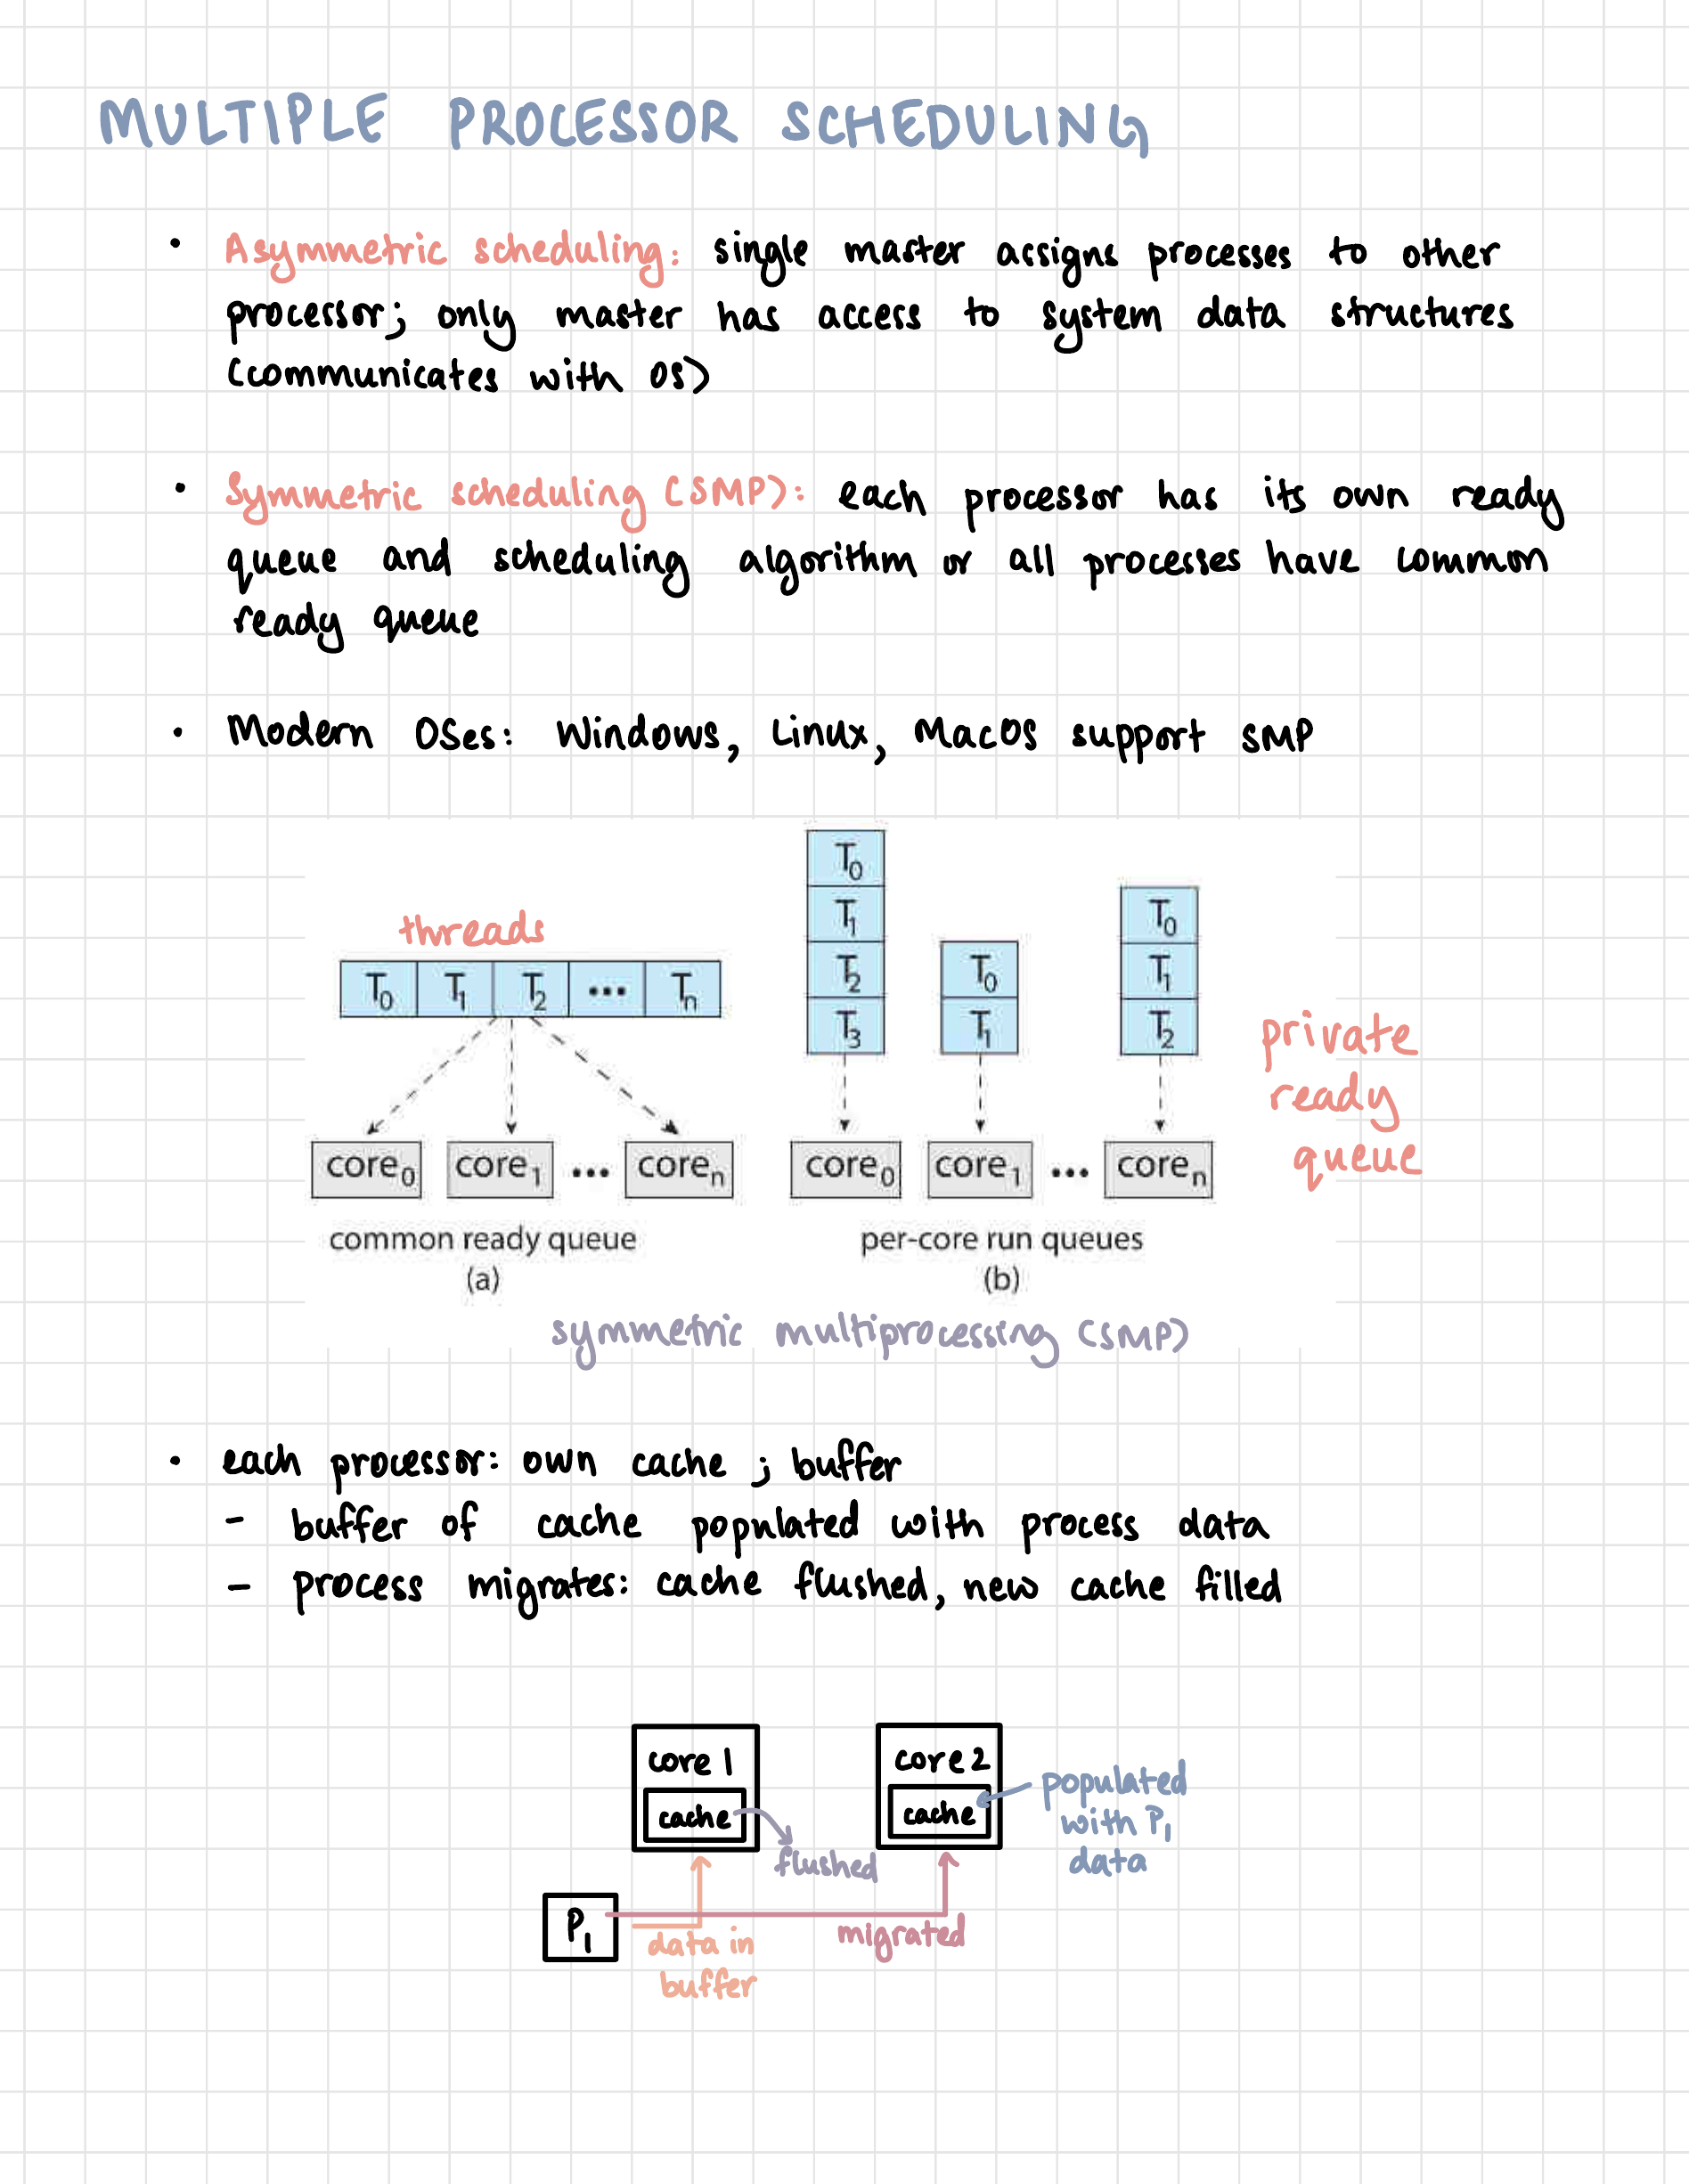 MULTIPLE PROCESSOR SCHEDULING
• Asymmetric scheduling: single master assigns processes to other
processor; only master has access to system data structures
(communicates with OS)
• Symmetric scheduling (SMP): each processor has its own ready
queue and scheduling algorithm or all processes have common
ready queue
• Modern OSes: Windows, Linux, MacOS support SMP
threads
T0 T1 T2 ... Tn
core0 core1 ... coren
common ready queue
(a)
T0
T1
T2
T3
T0
T1
T0
T1
T2
core0 core1 ... coren
per-core run queues
(b)
private
ready
queue
symmetric multiprocessing (SMP)
• each processor: own cache ; buffer
- buffer of cache populated with process data
- process migrates: cache flushed, new cache filled
core 1
cache
flushed
core 2
cache
populated
with P1
data
P1
data in
buffer
migrated